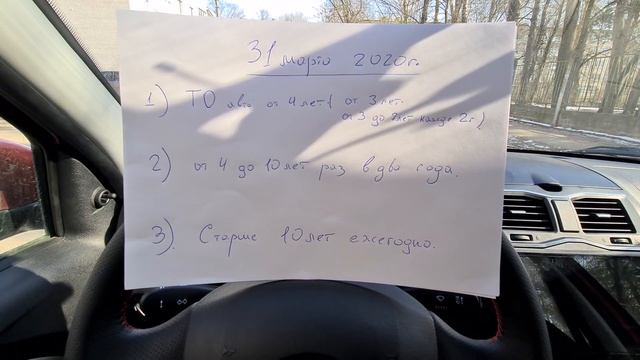 31 марта 2020г.
1) ТО авто от 4 лет( от 3 лет
от 3 до 7 лет кажде 2 г.)
2) от 4 до 10 лет раз в два года.
3). Старше 10 лет ежегодно.